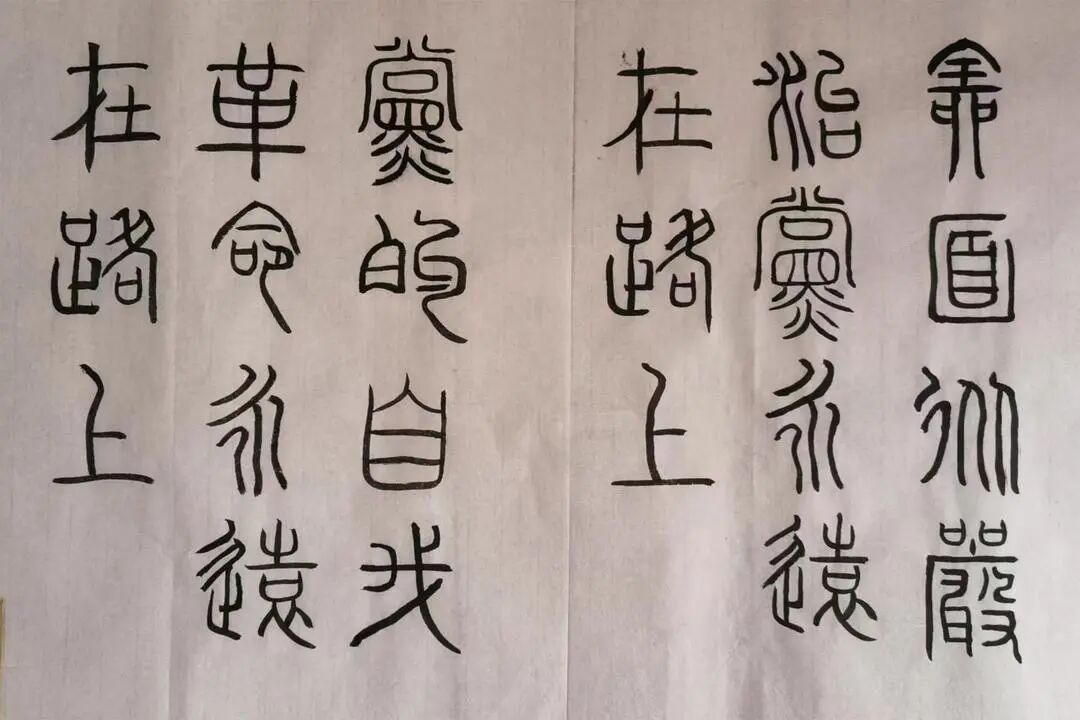 全面從嚴
治黨永遠
在路上
黨的自我
革命永遠
在路上